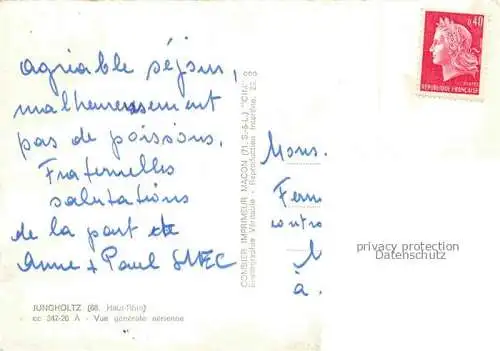 agréable séjour,
malheureusement
pas de poissons.
Fraternelles
salutations
de la part de
Anne + Paul
JUNGHOLTZ (68. Haut-Rhin)
cc 347-20 A - Vue générale aérienne
COMBIER IMPRIMEUR MACON (71. S-&-L.) "CIM"
Reproduction Interdite.
0,40
REPUBLIQUE FRANÇAISE
Mons.
Fern
contro
M
à.
privacy protection
Datenschutz